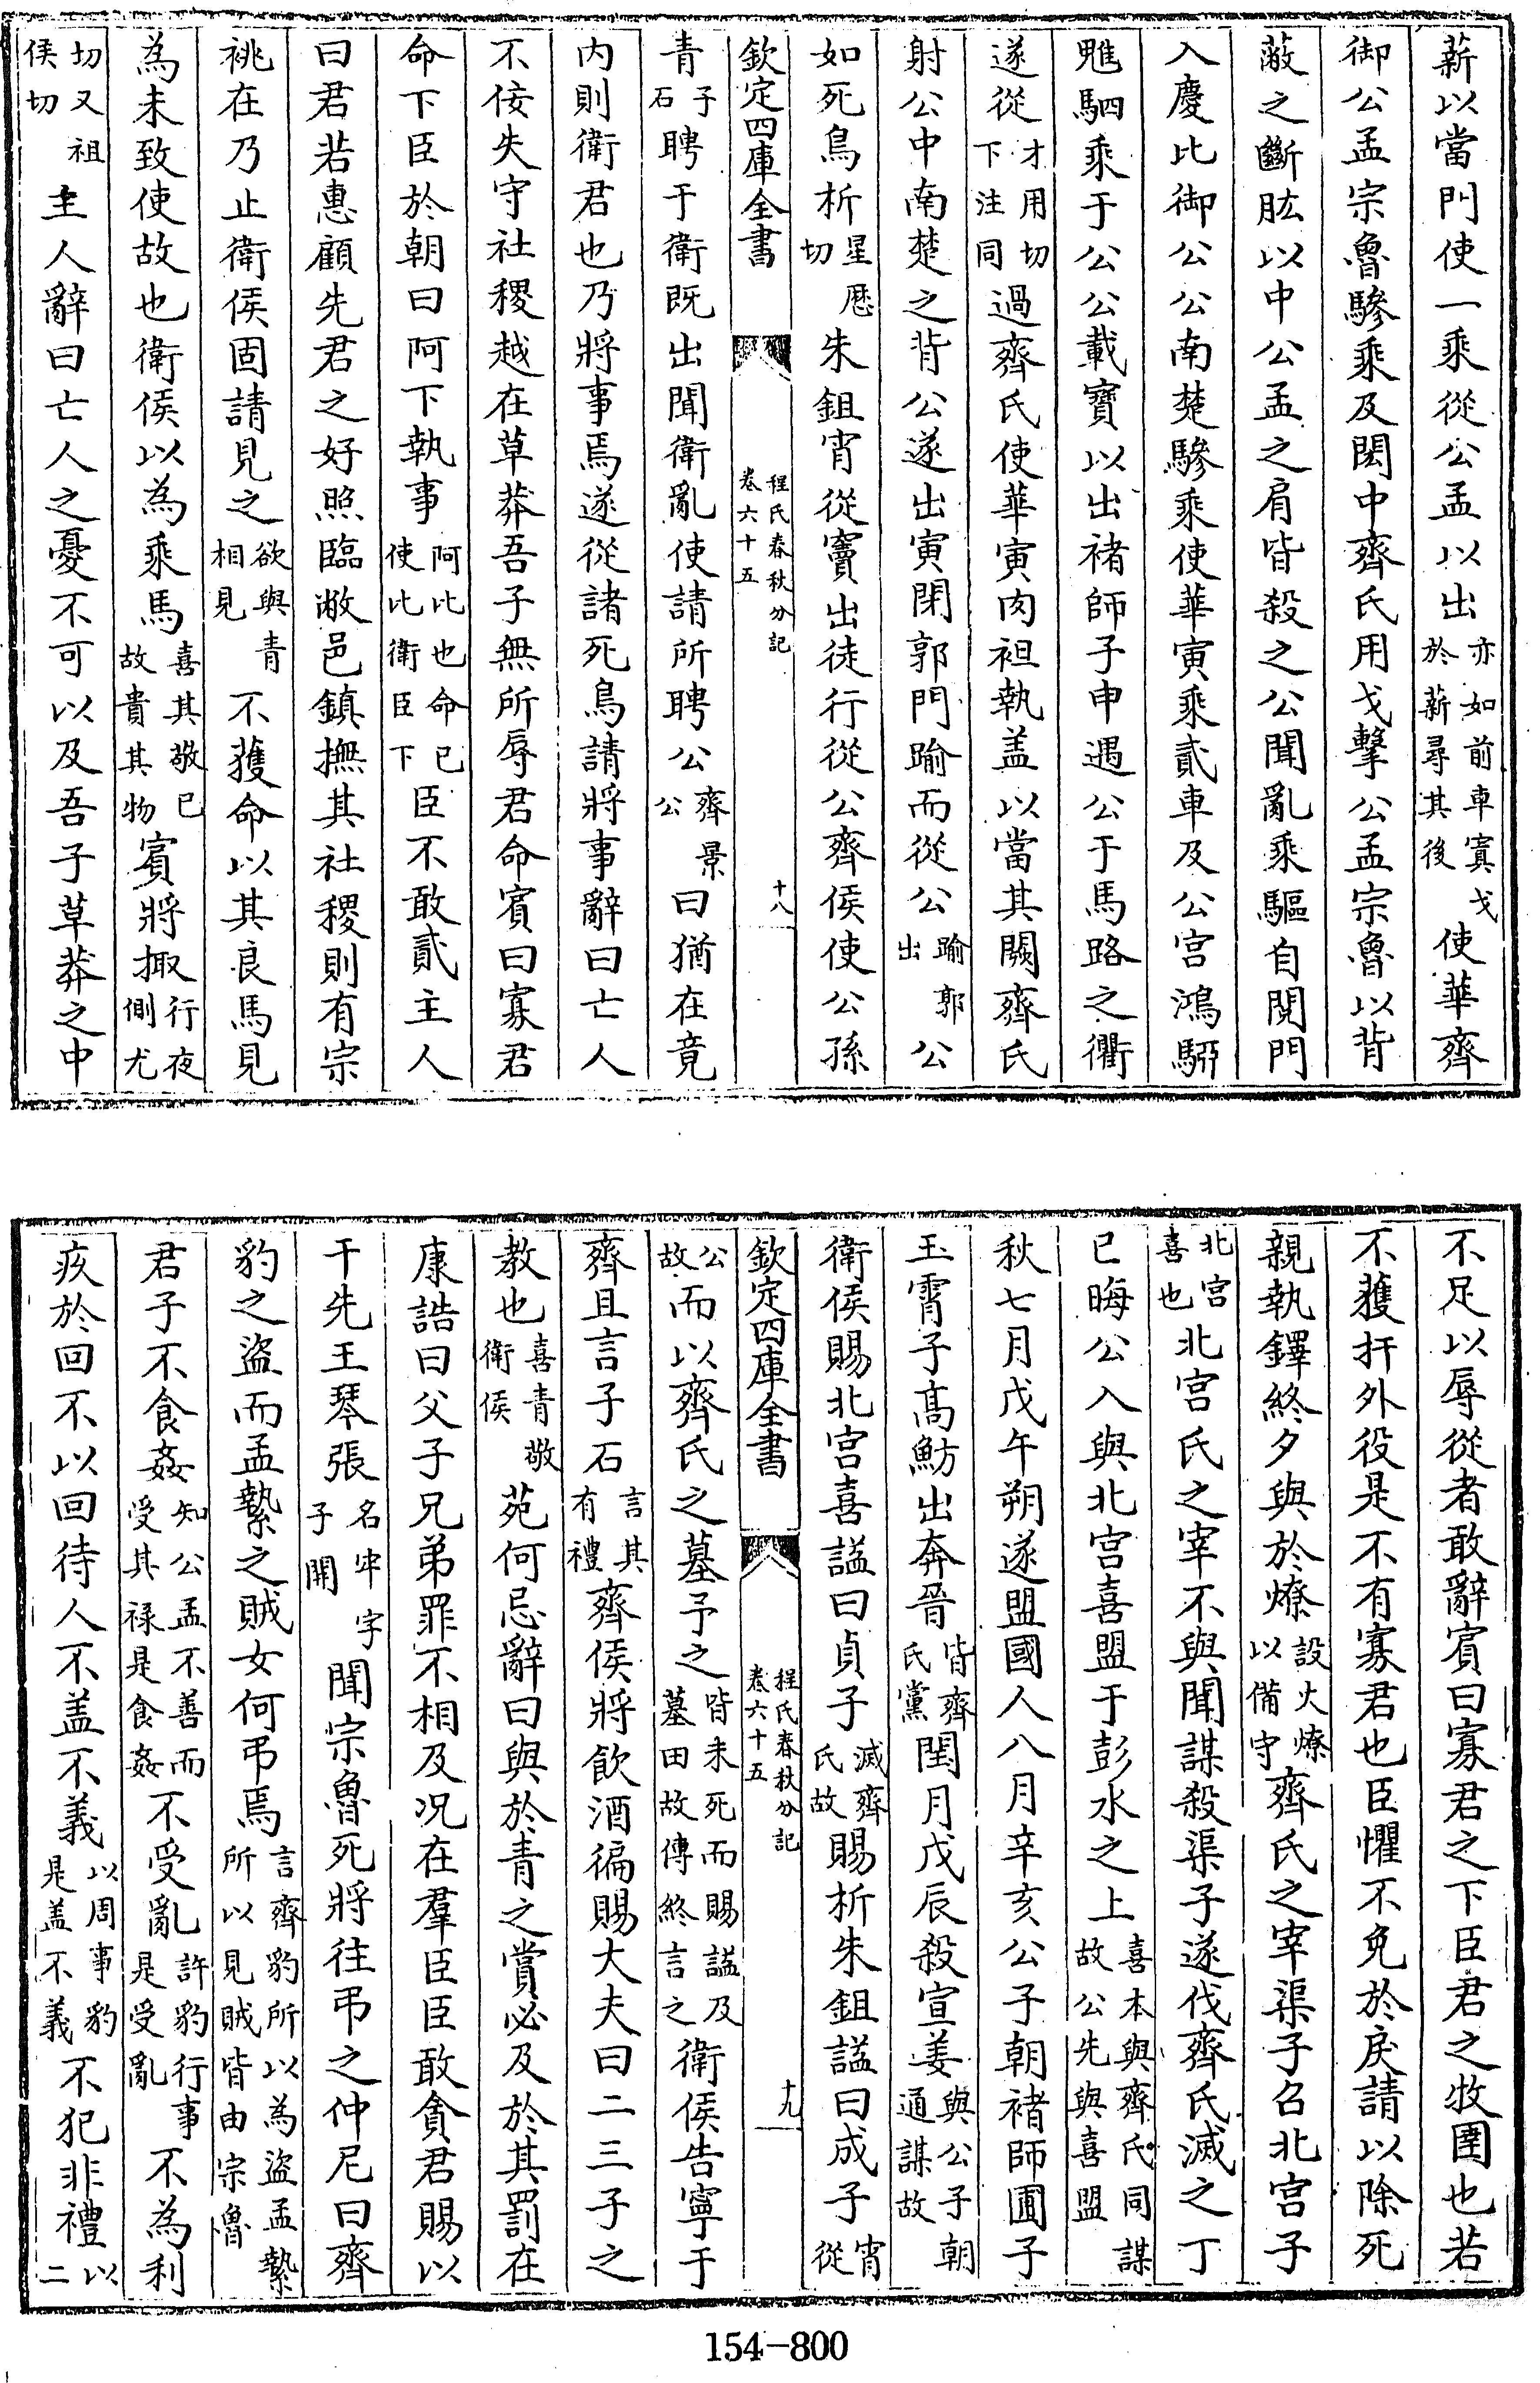 薪以當門使一乘從公孟以出亦如前車寘戈於薪尋其後使華齊
御公孟宗魯驂乘及閎中齊氏用戈擊公孟宗魯以背
蔽之斷肱以中公孟之肩皆殺之公聞亂乘驅自閱門
入慶比御公公南楚驂乘使華寅乘貳車及公宫鴻駵
魋駟乘于公公載寳以出褚師子申遇公于馬路之衢
遂從才用切下注同過齊氏使華寅肉袒執盖以當其闕齊氏
射公中南楚之背公遂出寅閉郭門踰而從公踰郭出公
如死鳥析星厯切朱鉏宵從竇出徒行從公齊侯使公孫
欽定四庫全書
程氏春秋分記
卷六十五
十八
青子石聘于衛既出聞衛亂使請所聘公齊景公曰猶在竟
内則衛君也乃將事焉遂從諸死鳥請將事辭曰亡人
不佞失守社稷越在草莽吾子無所辱君命賓曰寡君
命下臣於朝曰阿下執事阿比也命已使比衛臣下臣不敢貳主人
曰君若惠顧先君之好照臨敝邑鎮撫其社稷則有宗
祧在乃止衛侯固請見之欲與青相見不獲命以其良馬見
為未致使故也衛侯以為乘馬喜其敬已故貴其物賓將掫行夜側尤
切又祖侯切主人辭曰亡人之憂不可以及吾子草莽之中
不足以辱從者敢辭賓曰寡君之下臣君之牧圉也若
不獲扞外役是不有寡君也臣懼不免於戾請以除死
親執鐸終夕與於燎設火燎以備守齊氏之宰渠子召北宫子
北宫喜也北宫氏之宰不與聞謀殺渠子遂伐齊氏滅之丁
巳晦公入與北宫喜盟于彭水之上喜本與齊氏同謀故公先與喜盟
秋七月戊午朔遂盟國人八月辛亥公子朝褚師圃子
玉霄子髙魴出奔晉皆齊氏黨閏月戊辰殺宣姜與公子朝通謀故
衛侯賜北宫喜諡曰貞子滅齊氏故賜析朱鉏諡曰成子宵從
欽定四庫全書
程氏春秋分記
卷六十五
十九
公故而以齊氏之墓予之皆未死而賜諡及墓田故傳終言之衛侯告寧于
齊且言子石言其有禮齊侯將飲酒徧賜大夫曰二三子之
教也喜青敬衛侯苑何忌辭曰與於青之賞必及於其罰在
康誥曰父子兄弟罪不相及况在羣臣臣敢貪君賜以
干先王琴張名牢字子開聞宗魯死將往弔之仲尼曰齊
豹之盜而孟縶之賊女何弔焉言齊豹所以為盜孟縶所以見賊皆由宗魯
君子不食姦知公孟不善而受其禄是食姦不受亂許豹行事是受亂不為利
疚於回不以回待人不盖不義以周事豹是盖不義不犯非禮以二
154-800